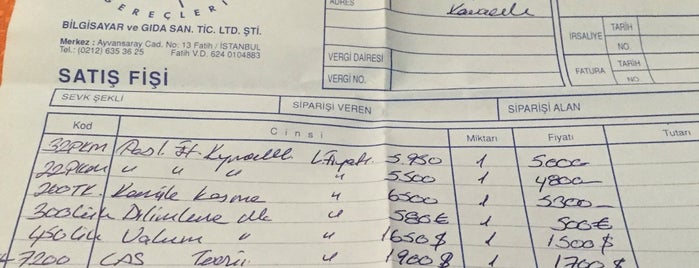 GEREÇLERİ
BİLGİSAYAR ve GIDA SAN. TİC. LTD. ŞTİ.
Merkez : Ayvansaray Cad. No: 13 Fatih / İSTANBUL
Tel.: (0212) 635 36 25 Fatih V.D. 624 0104883
ADRES
VERGİ DAİRESİ
VERGİ NO.
İRSALİYE TARİH
NO.
FATURA TARİH
NO.
SATIŞ FİŞİ
SEVK ŞEKLİ SİPARİŞİ VEREN SİPARİŞİ ALAN
Kod Cinsi Miktarı Fiyatı Tutarı
32PKM L.Fiyatı 5.950 1 5000
22PKM " " " " 5500 1 4800
Kesme " 6500 1 5300
Dilimleme " 580€ 1 500€
Vakum " " 1650$ 1 1500$
7200 CAS Terazi " 1900$ 1 1700$